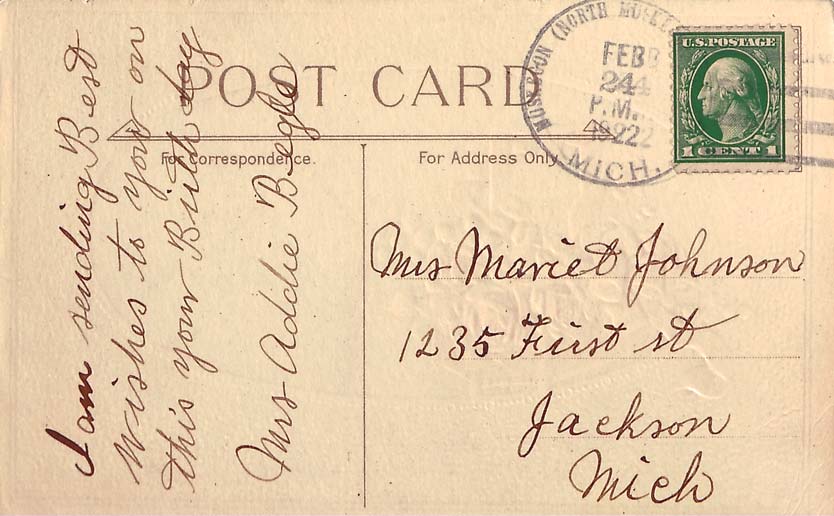 POST CARD
For Correspondence.
For Address Only
MUSKEGON (NORTH
FEB
24
P.M.
1922
MICH.
U.S. POSTAGE
1 CENT 1
I am sending Best
wishes to you on
this your Birth day
Mrs Addie Begle
Mrs Mariet Johnson
1235 First st
Jackson
Mich